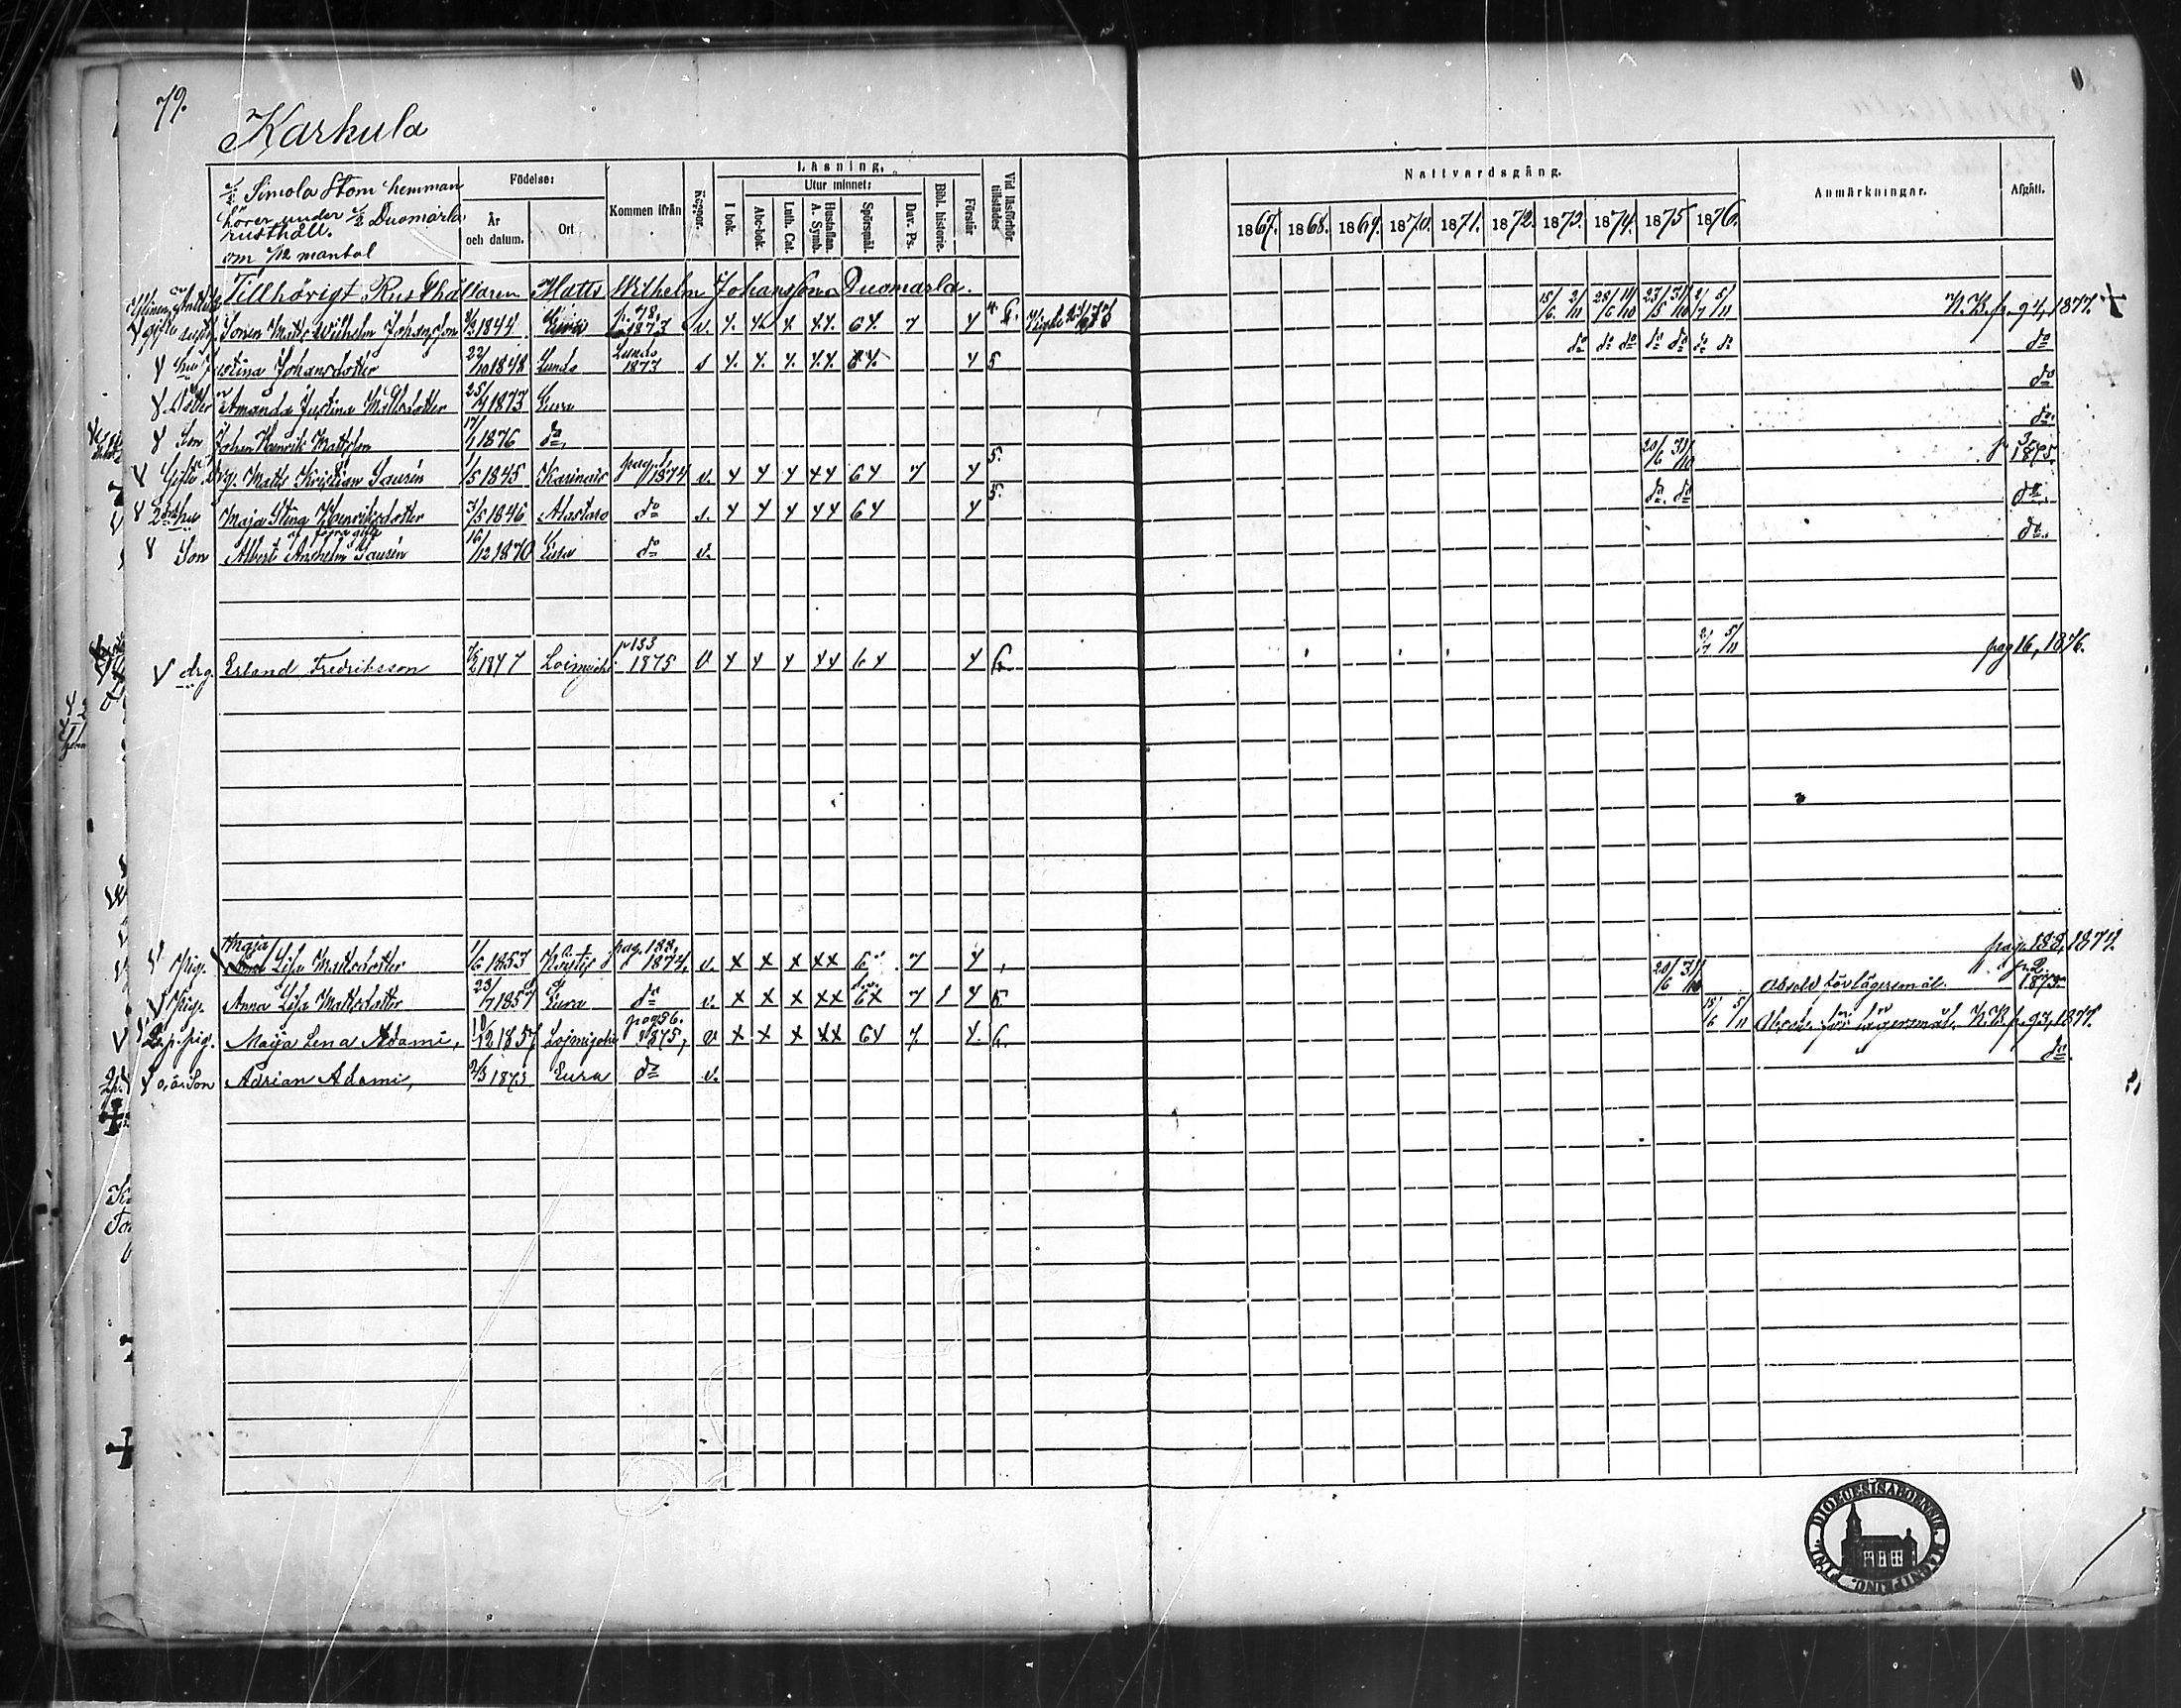 79.
Karkula
1/2 Simola Stom hemman
hörer under 1/2 Duomarla
rusthåll.
om 7/12 mantal
Födelse:
År och datum.
Ort
Kommen ifrån
Koppor.
Läsning.
I bok.
Utur minnet:
Abc-bok.
Luth. Cat.
Hustaflan. A. Symb.
Spörsmål.
Dav. Ps.
Bibl. historie.
Förstår
Vid läsförhör. tillstädes
Nattvardsgång.
1867. 1868. 1869. 1870. 1871. 1872. 1873. 1874. 1875 1876.
Anmärkningar.
Afgått.
Tillhörigt Rusthållaren Matts Wilhelm Johansson Duomarla.
Sonen Matts Wilhelm Johansson 1844 Eura p. 78. 1873 v. 64. 7 4 15/6 2/11 28/6 11/10 23/5 31/10 2/7 5/11 N.B. p. 94, 1877.
hu Justina Johansdotter 22/10 1848 Lundo Lundo 1873 64. 4 5 do do do do do do do do
dotter Amanda Justina Mattsdotter 25/7 1873 Eura do
Son Johan Henrik Mattsson 17/1 1876 do do.
Gifte Drg. Matts Kristian Saurén 1/5 1845 Karinais pag. 1, 1874 v. 4 4 4 44 64 7 4 5. 20/6 31/10 p 3, 1875.
2dra hu Maja Stina Henriksdotter 3/5 1846 Alastaro do 4 4 4 44 64 4 5. do. do do.
af förra gifte
Son Albert Anshelm Saurén 16/12 1870 Eura do v. do.
V drg. Erland Fredriksson 1847 Loimijoki p 133 1875 V 4 4 4 44 64 4 6. 2/7 5/11 pag 16, 1876.
V Pig. Maja Lisa Mattsdotter 1/6 1853 pag. 188, 1874, v. x x x xx 7 4 pag. 188, 1877.
V Pig. Anna Lisa Mattsdotter 23/7 1857 Eura do v. x x x xx 6x 7 1 4 5. 20/6 31/10 Absolv. för lägersmål. p. 2 1875
V pig. Maija Lena Adami, 10/12 1857 Loimijoki pag 56. 1875, v x x x xx 64 7. 4. 6. 15/6 5/11 Absolv. för lägersmål. N.B. p. 93, 1877.
o. ä. Son Adrian Adami, 2/3 1873 Eura do v. do.
DIOECESIS ABOENSIS MAGNI PRINC. FINL.